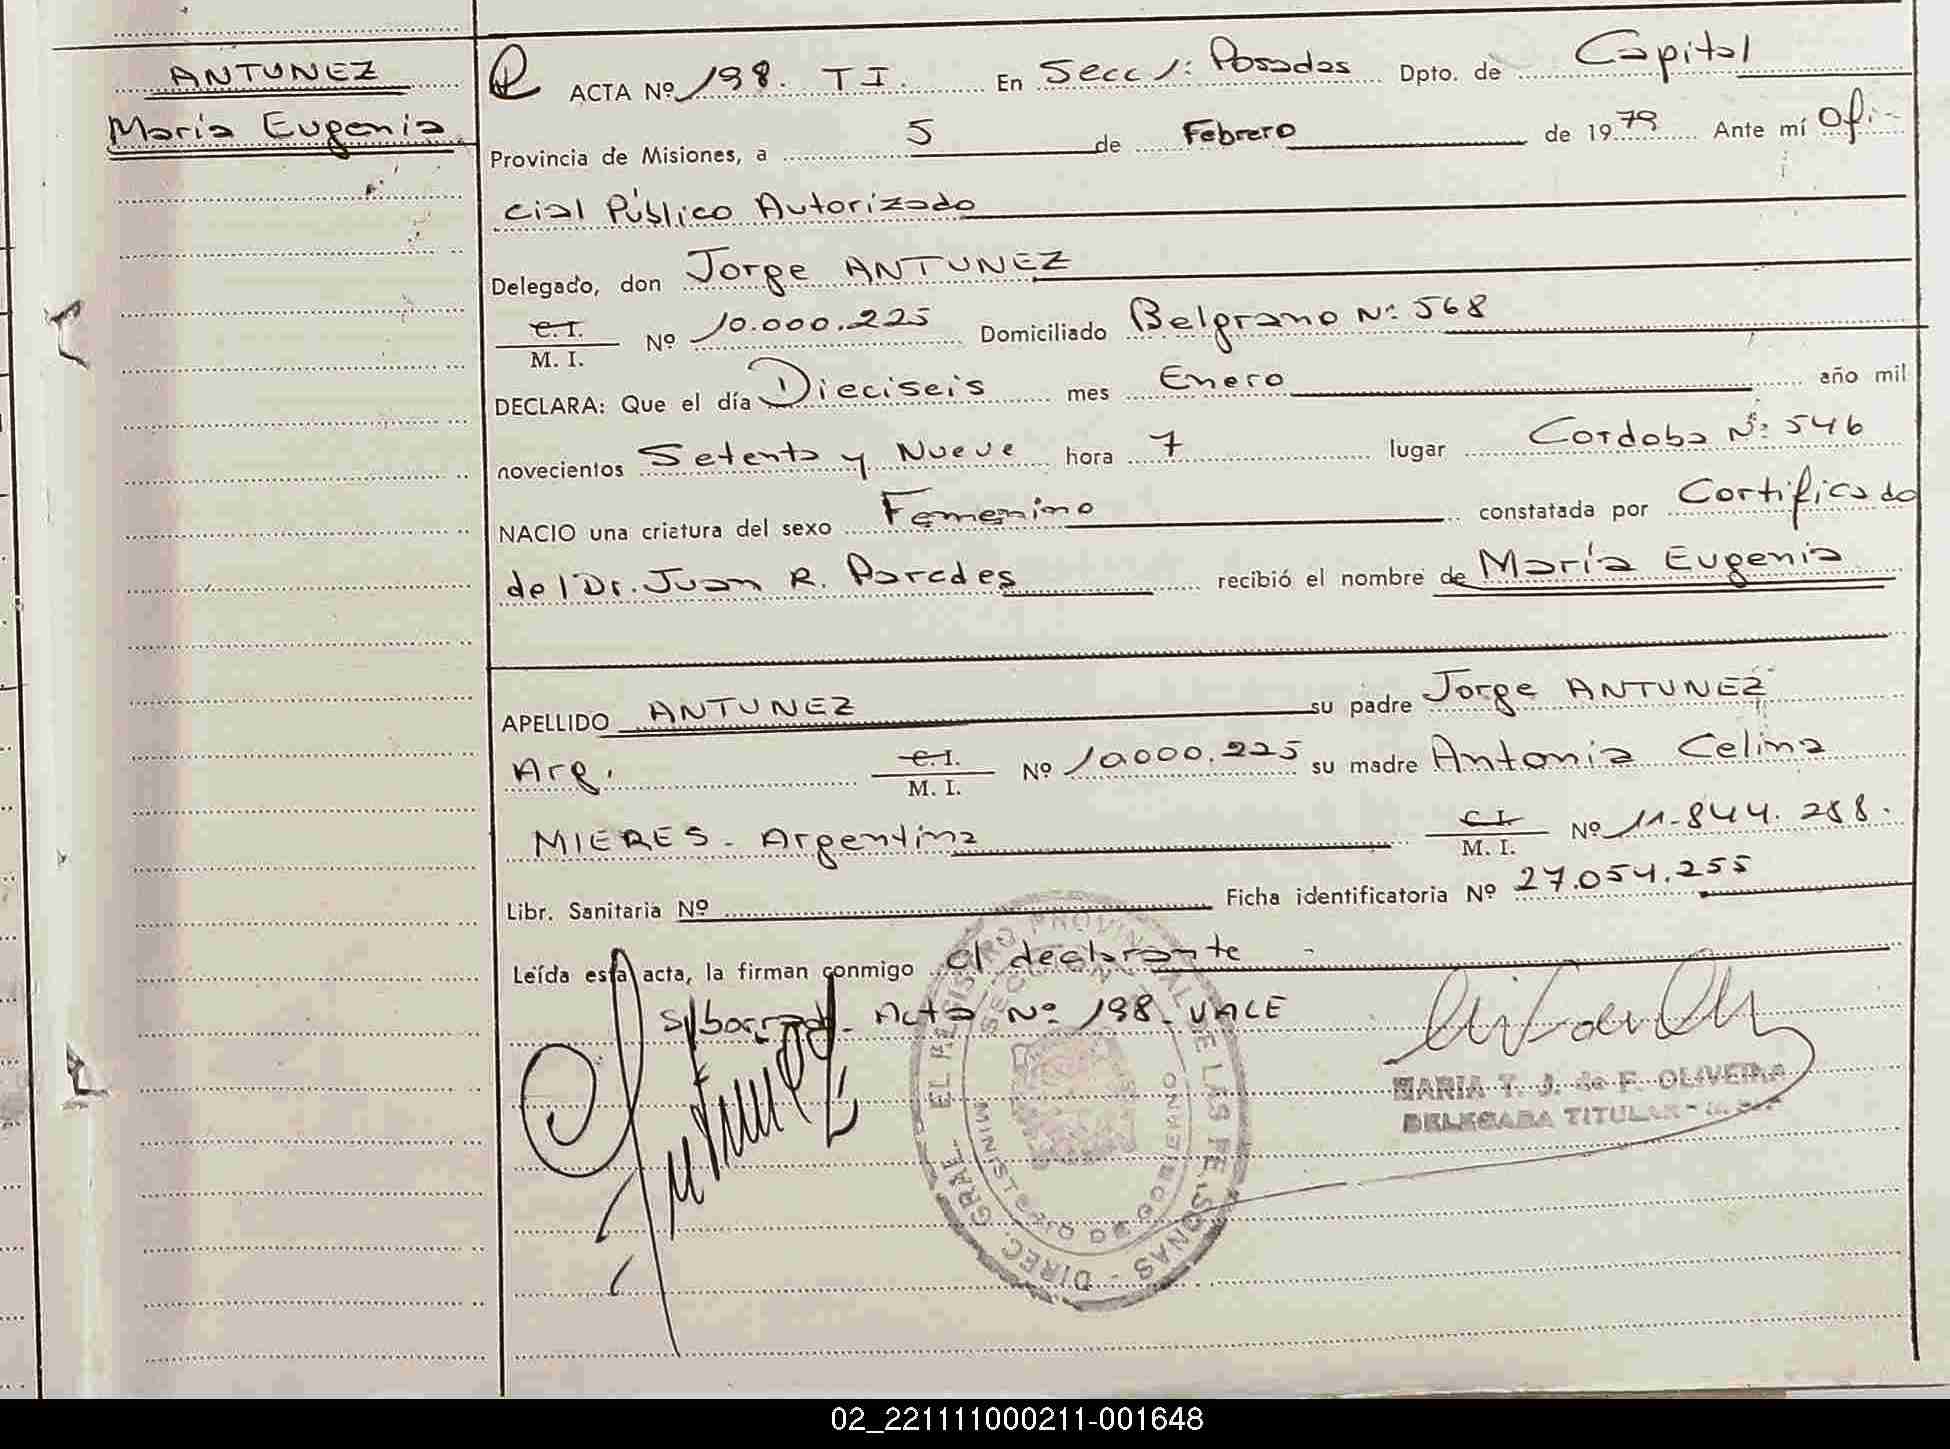 ANTUNEZ
María Eugenia
ACTA Nº 198. T I. En Secc 1: Posadas Dpto. de Capital
Provincia de Misiones, a 5 de Febrero de 1979 Ante mí Ofi-
cial Público Autorizado
Delegado, don Jorge ANTUNEZ
C.I.
M. I. Nº 10.000.225 Domiciliado Belgrano Nº: 568
DECLARA: Que el día Dieciseis mes Enero año mil
novecientos Setenta y Nueve hora 7 lugar Cordoba Nº: 546
NACIO una criatura del sexo Femenino constatada por Certificado
del Dr. Juan R. Paredes recibió el nombre de María Eugenia
APELLIDO ANTUNEZ su padre Jorge ANTUNEZ
Arg. C.I.
M. I. Nº 10.000.225 su madre Antonia Celina
MIERES - Argentina C.I.
M. I. Nº 11.844.288.
Libr. Sanitaria Nº Ficha identificatoria Nº 27.054.255
Leída esta acta, la firman conmigo el declarante
S/borrado. Acta Nº 198. VALE
Antunez
DIREC. GRAL. EL REGISTRO PROVINCIAL DE LAS PERSONAS
MINISTERIO DE GOBIERNO
MARIA T. J. de F. OLIVEIRA
DELEGADA TITULAR
02_221111000211-001648